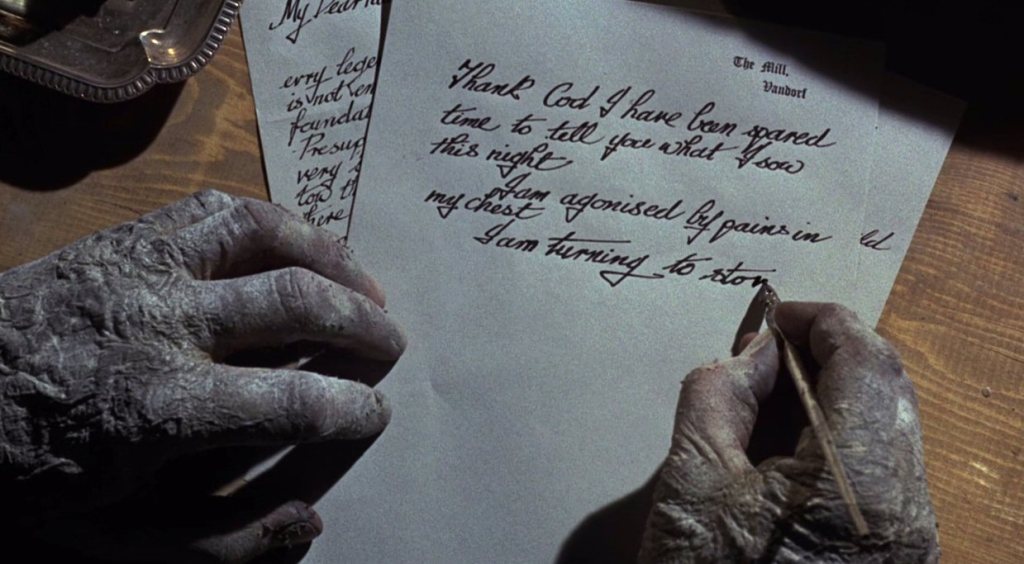 My Dear
erry lege
is not en
foundat
Presup
very
tow th
here
The Mill,
Vandorf
Thank God I have been spared
time to tell you what I saw
this night
I am agonised by pains in
my chest
I am turning to ston